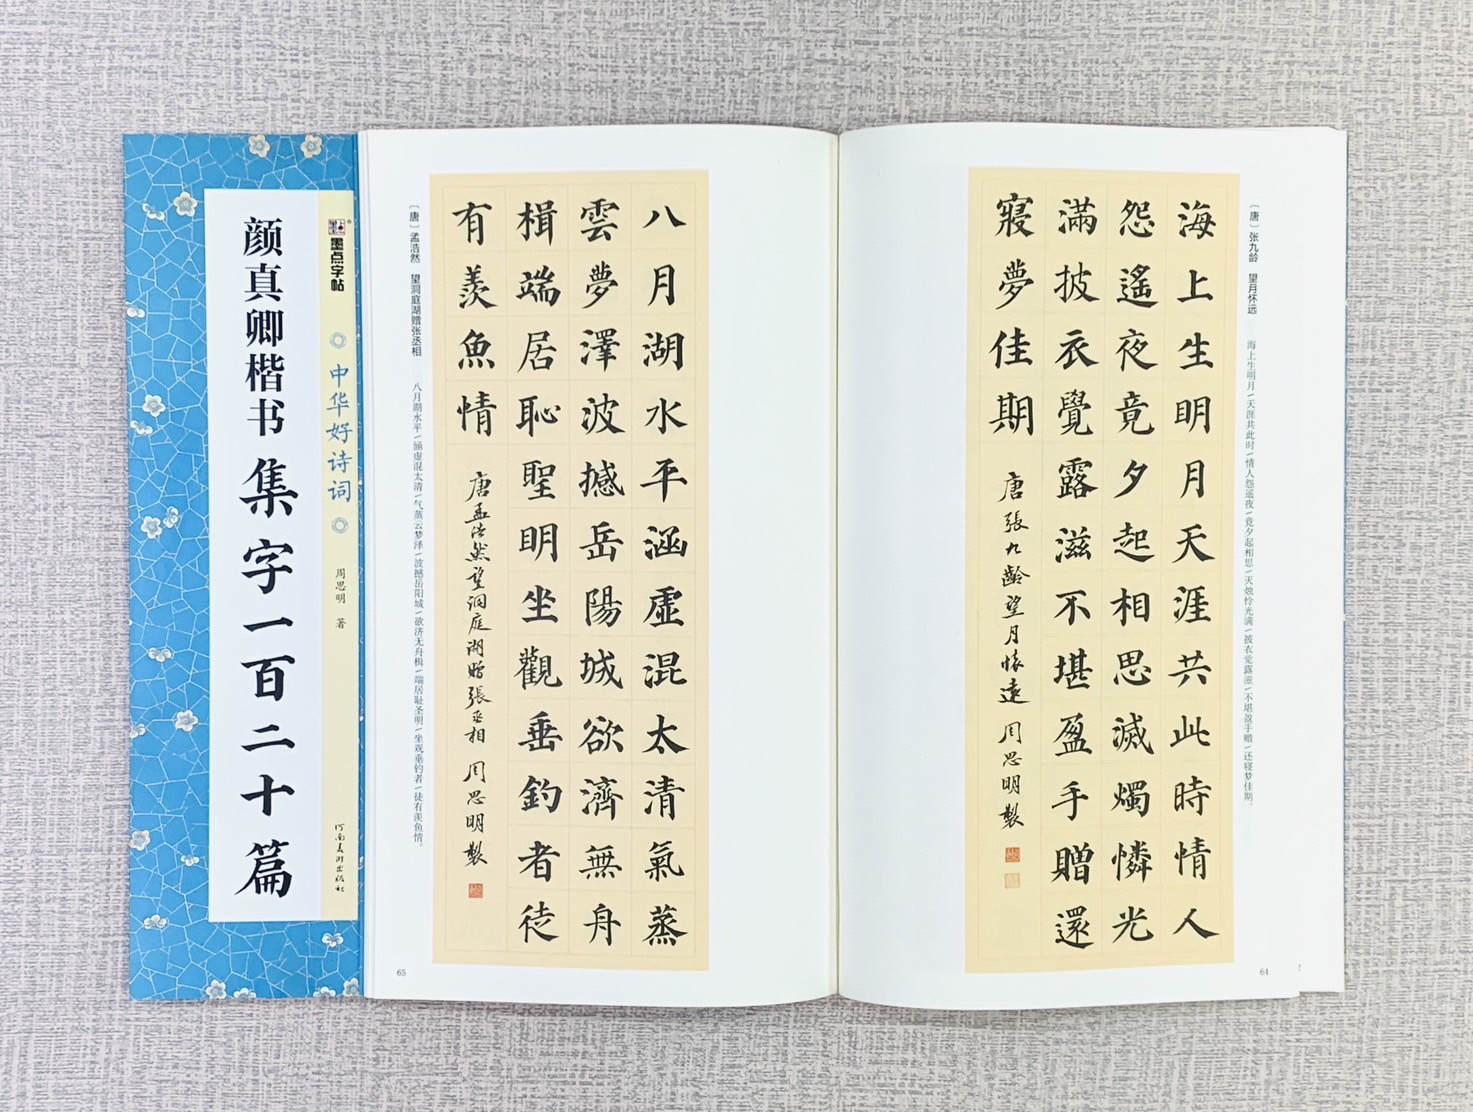 墨点字帖
中华好诗词
周思明 著
河南美术出版社
颜真卿楷书集字一百二十篇
〔唐〕张九龄 望月怀远
海上生明月/天涯共此时/情人怨遥夜/竟夕起相思/灭烛怜光满/披衣觉露滋/不堪盈手赠/还寝梦佳期。
海上生明月天涯共此時情人
怨遙夜竟夕起相思滅燭憐光
滿披衣覺露滋不堪盈手贈還
寢夢佳期
唐張九齡望月懷遠 周思明製
64
八月湖水平涵虛混太清氣蒸
雲夢澤波撼岳陽城欲濟無舟
楫端居恥聖明坐觀垂釣者徒
有羨魚情
唐孟浩然望洞庭湖贈張丞相 周思明製
〔唐〕孟浩然 望洞庭湖赠张丞相
八月湖水平/涵虚混太清/气蒸云梦泽/波撼岳阳城/欲济无舟楫/端居耻圣明/坐观垂钓者/徒有羡鱼情。
65